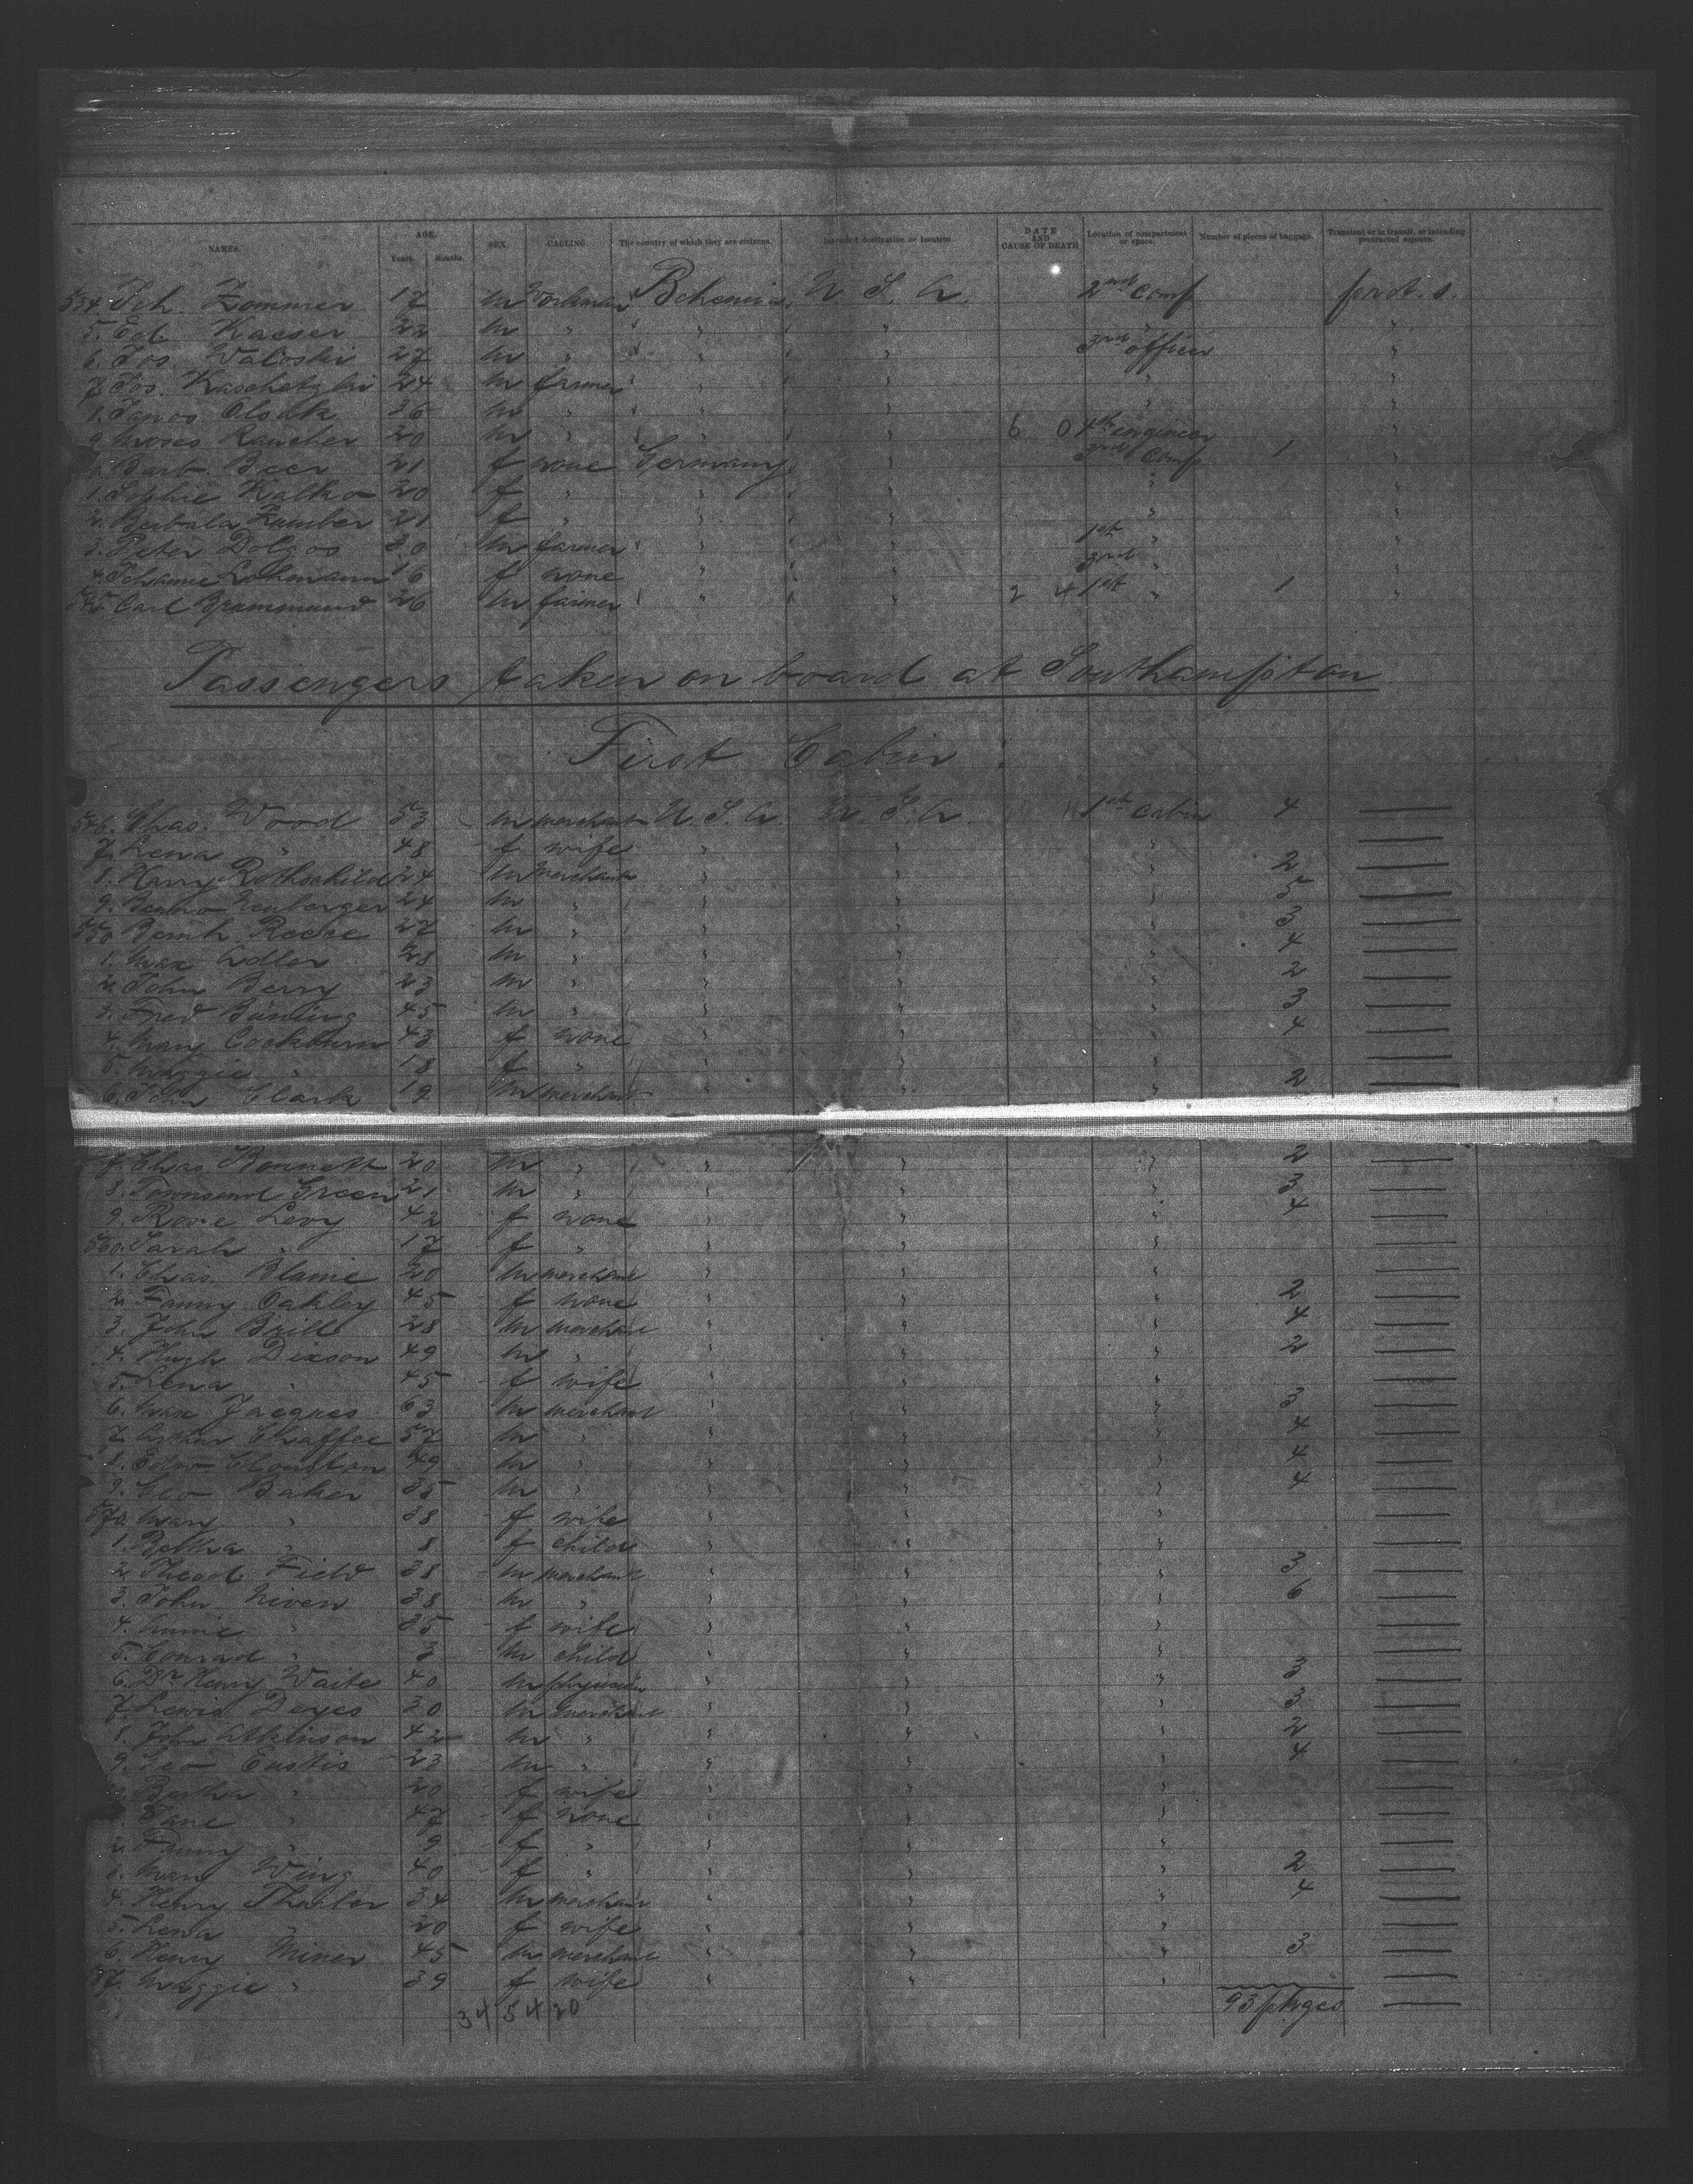 NAMES. AGE. Years. Months. SEX. CALLING. The country of which they are citizens. Intended destination or location. DATE AND CAUSE OF DEATH Location of compartment or space. Number of pieces of baggage. Transient or in transit, or intending protracted sojourn.
534. Joh. Zommer 17 m Workman Bohemia U. S. A. 2nd Comp prot. s.
5. Ed. Kaeser 22 m " " " " "
6. Jos. Waloski 27 m " " " 3rd officer "
7. Jos. Kaschetzki 24 m farmer " " " "
8. Janos Olsak 36 m " " " " "
9. Moses Rauscher 20 m " " " 6 0 4th engineer "
0. Barb. Beer 21 f none Germany " 3rd Comp 1 "
1. Sophie Kalka 20 f " " " " "
2. Barbala Zumber 21 f " " " " "
3. Peter Dolgos 30 m farmer " " 1st " "
4. Johanne Lohmann 16 f none " " 3rd " "
545. Carl Brummund 26 m farmer " " 2 4 1st " 1 "
Passengers taken on board at Southampton
First Cabin :
546. Chas. Wood 53 m merchant U. S. A. U. S. A. 1st Cabin 4 —
7. Lena " 48 f wife " " " —
8. Harry Rothschild 24 m merchant " " " 2 —
9. Benno Neuberger 24 m " " " " 5 —
550. Bernh. Reece 27 m " " " " 3 —
1. Max Adler 28 m " " " " 4 —
2. John Berry 23 m " " " " 2 —
3. Fred Büning 45 m " " " " 3 —
4. Mary Cockburn 43 f none " " " 4 —
5. Maggie " 18 f " " " " —
6. John Clark 19 m merchant " " " 2 —
7. Chas. Bonnett 20 m " " " " 2 —
8. Townsend Green 21 m " " " " 3 —
9. Rosie Levy 42 f none " " " 4 —
560. Sarah " 17 f " " " " —
1. Chas. Blaine 20 m merchant " " " —
2. Fanny Oakley 45 f none " " " 2 —
3. John Brill 28 m merchant " " " 4 —
4. Hugh Dixson 49 m " " " " 2 —
5. Lena " 45 f wife " " " —
6. Max Jacques 63 m merchant " " " 3 —
7. Arthur Chaffee 57 m " " " " 4 —
8. Edw. Clouston 49 m " " " " 4 —
9. Geo Baker 35 m " " " " 4 —
570. Mary " 38 f wife " " " —
1. Bertha " 8 f child " " " —
2. Theod. Field 38 m merchant " " " 3 —
3. John Niven 38 m " " " " 6 —
4. Annie " 35 f wife " " " —
5. Conrad " 3 m child " " " —
6. Dr Henry Waite 40 m physician " " " 3 —
7. Lewis Deyes 30 m merchant " " " 3 —
8. John Atkinson 42 m " " " " 2 —
9. Geo Eustis 23 m " " " " 4 —
0. Bertha " 20 f wife " " " —
1. Jane " 47 f none " " " —
2. Fanny " 9 f " " " " —
3. Mary Wing 40 f " " " " 2 —
4. Henry Thaeler 34 m merchant " " " 4 —
5. Lena " 20 f wife " " " —
6. Henry Miner 45 m merchant " " " 3 —
87. Maggie " 39 f wife " " " —
34 54 20 93 pkges —